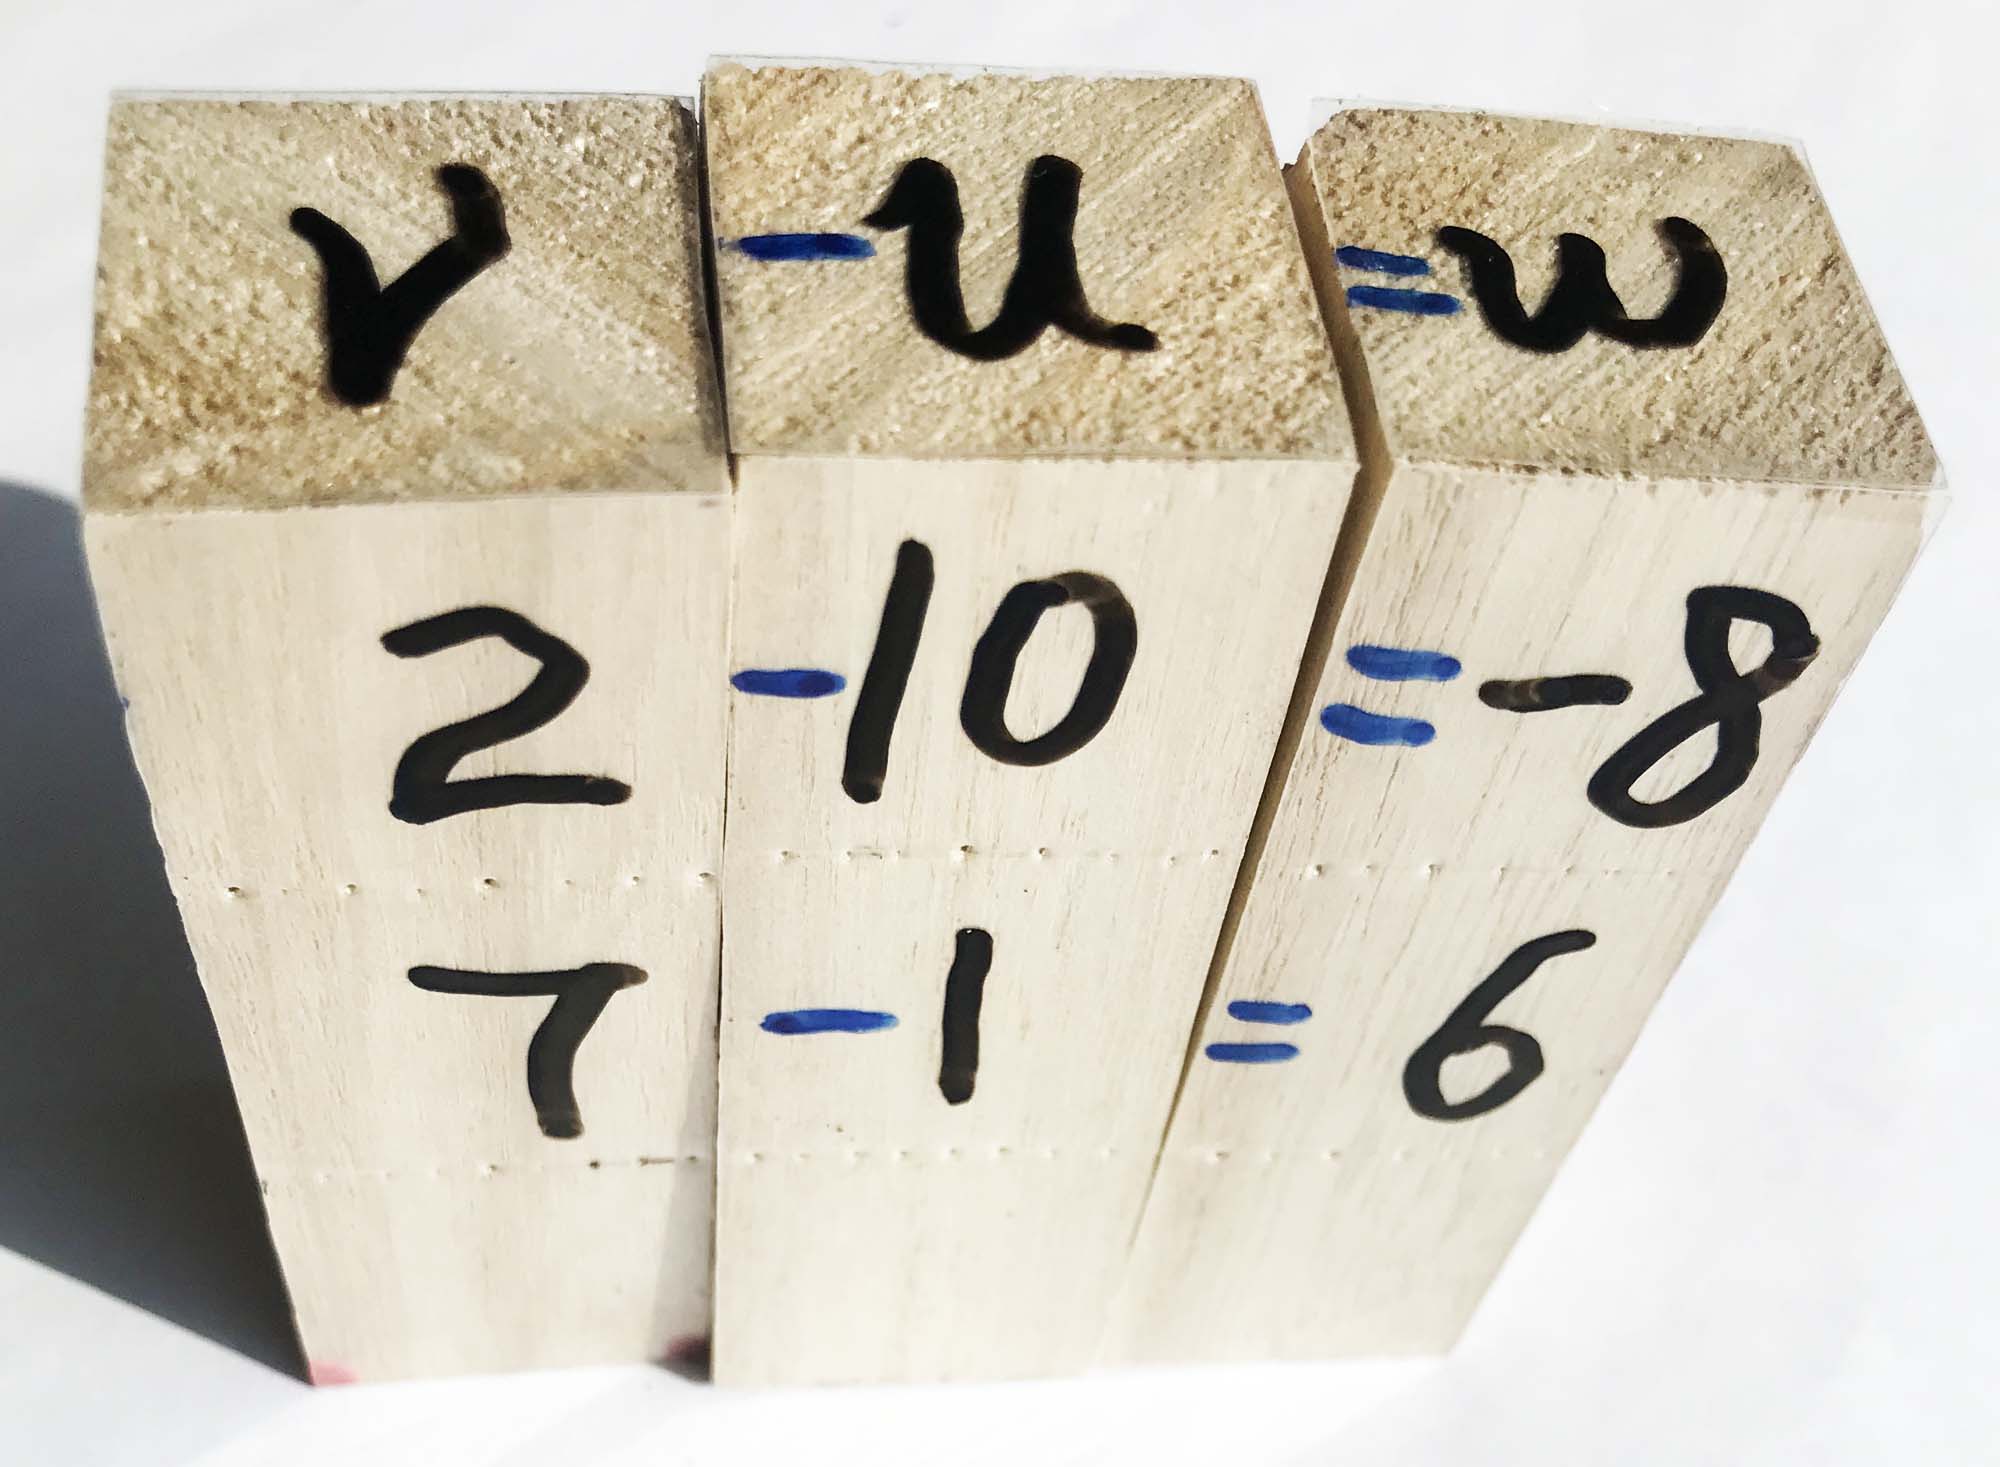 v - u = w
2 - 10 = -8
7 - 1 = 6